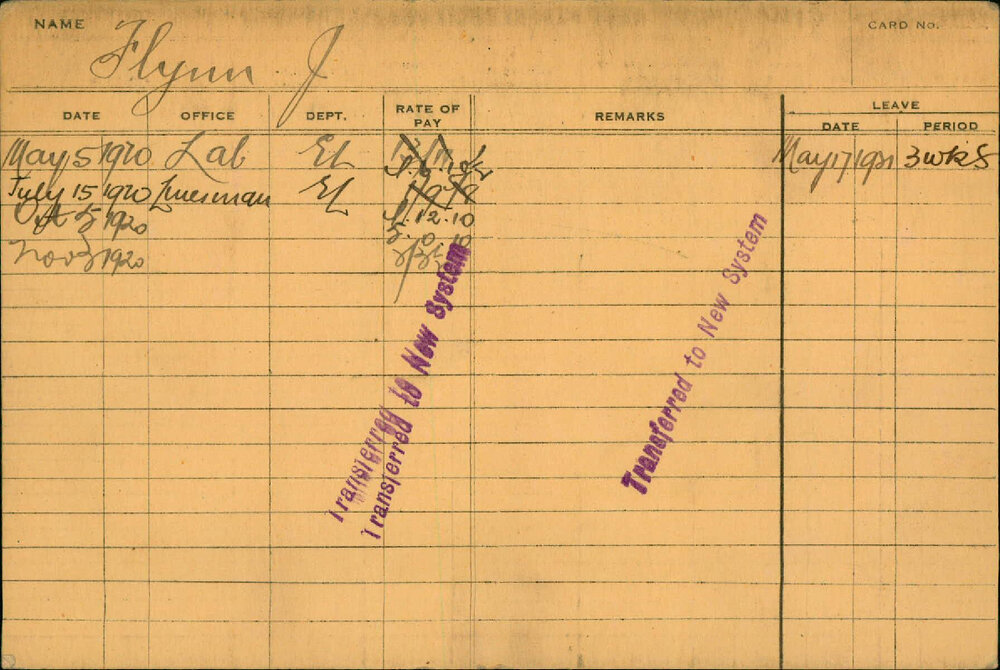 NAME Flynn J CARD No.
DATE OFFICE DEPT. RATE OF PAY REMARKS LEAVE
DATE PERIOD
May 5 1920 Lab EL May 17 1921 3 wks
July 15 1920 Linesman EL
Oct 5 1920 12.10
Nov 3 1920
Transferred to New System
Transferred to New System
Transferred to New System